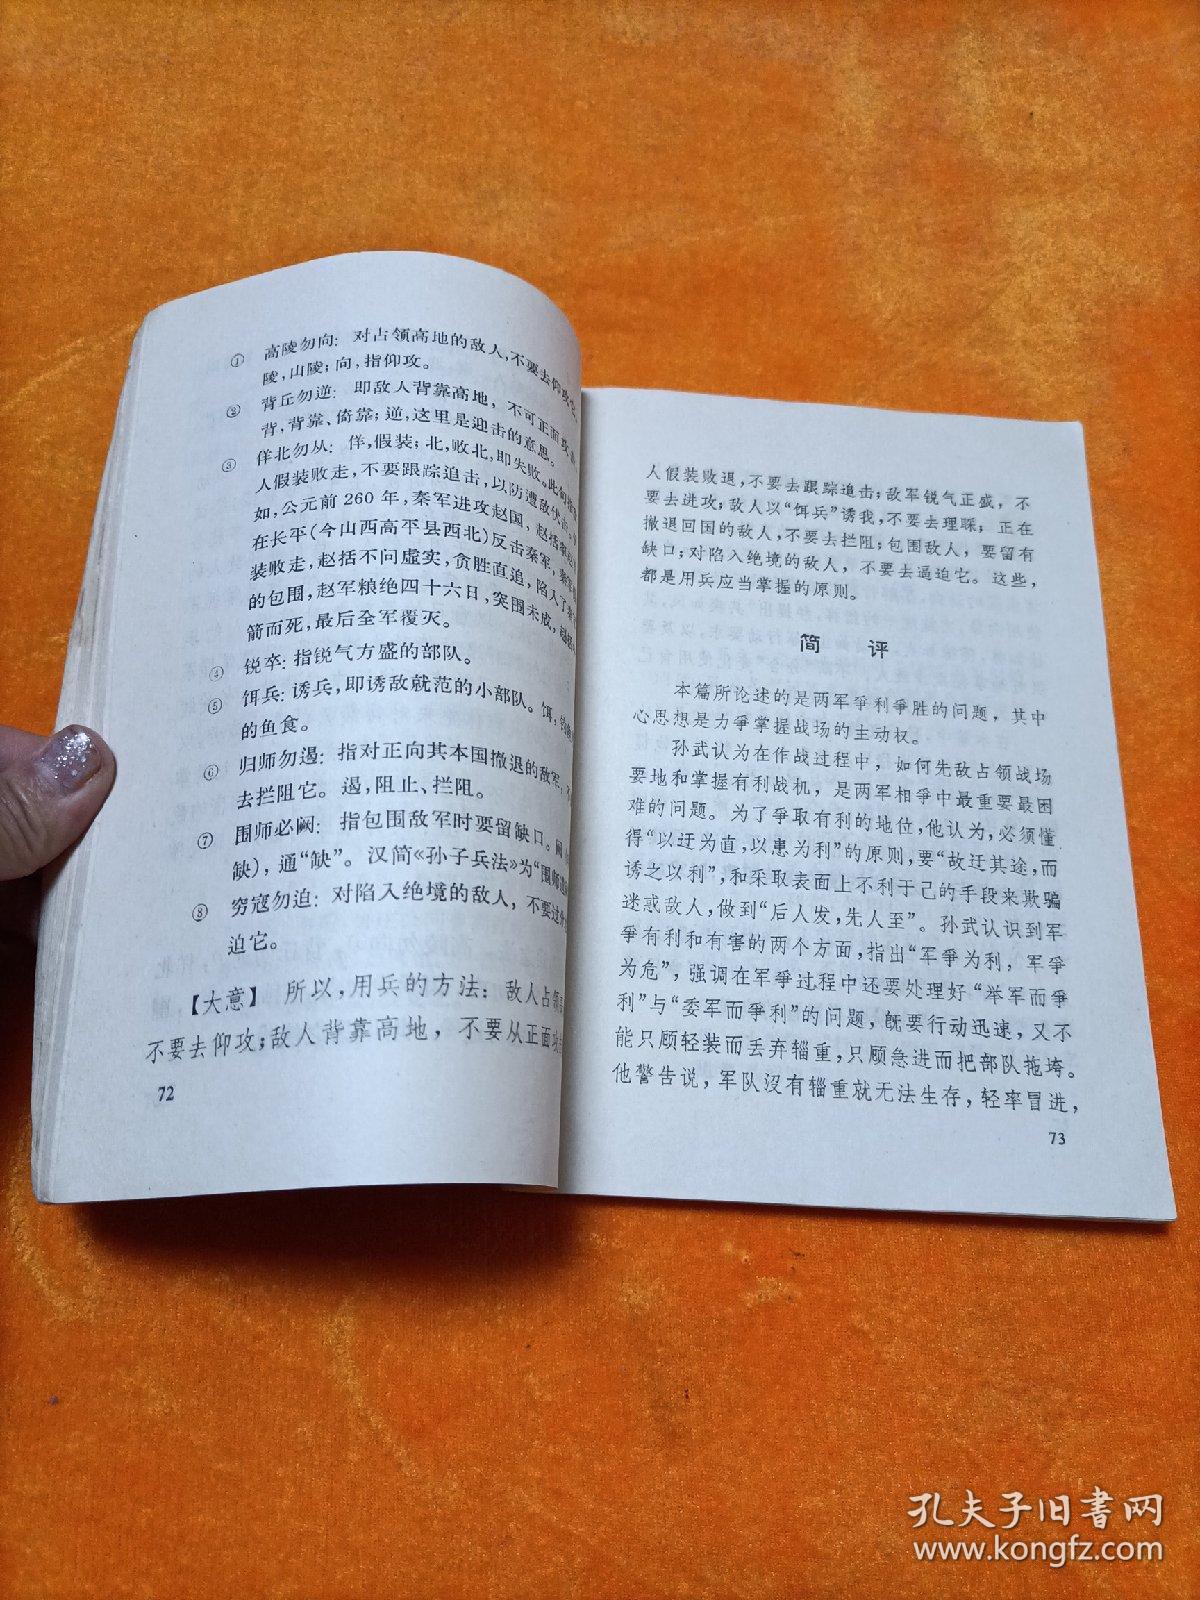 ① 高陵勿向：对占领高地的敌人，不要去仰攻它。
陵，山陵；向，指仰攻。
② 背丘勿逆：即敌人背靠高地，不可正面攻击。
背，背靠、倚靠；逆，这里是迎击的意思。
③ 佯北勿从：佯，假装；北，败北，即失败。此句指
人假装败走，不要跟踪追击，以防遭敌伏击。
如，公元前260年，秦军进攻赵国，赵括
在长平（今山西高平县西北）反击秦军，秦军
装败走，赵括不问虚实，贪胜直追，陷入了
的包围，赵军粮绝四十六日，突围未成，赵括
箭而死，最后全军覆灭。
④ 锐卒：指锐气方盛的部队。
⑤ 饵兵：诱兵，即诱敌就范的小部队。饵，钓
的鱼食。
⑥ 归师勿遏：指对正向其本国撤退的敌军，不
去拦阻它。遏，阻止、拦阻。
⑦ 围师必阙：指包围敌军时要留缺口。阙
缺），通“缺”。汉简《孙子兵法》为“围师
⑧ 穷寇勿迫：对陷入绝境的敌人，不要过
迫它。
【大意】 所以，用兵的方法：敌人占领
不要去仰攻；敌人背靠高地，不要从正面
72
人假装败退，不要去跟踪追击；敌军锐气正盛，不
要去进攻；敌人以“饵兵”诱我，不要去理睬；正在
撤退回国的敌人，不要去拦阻；包围敌人，要留有
缺口；对陷入绝境的敌人，不要去逼迫它。这些，
都是用兵应当掌握的原则。
简 评
本篇所论述的是两军爭利爭胜的问题，其中
心思想是力爭掌握战场的主动权。
孙武认为在作战过程中，如何先敌占领战场
要地和掌握有利战机，是两军相爭中最重要最困
难的问题。为了爭取有利的地位，他认为，必须懂
得“以迂为直，以患为利”的原则，要“故迂其途，而
诱之以利”，和采取表面上不利于己的手段来欺骗
迷惑敌人，做到“后人发，先人至”。孙武认识到军
爭有利和有害的两个方面，指出“军爭为利，军爭
为危”，强调在军爭过程中还要处理好“举军而爭
利”与“委军而爭利”的问题，既要行动迅速，又不
能只顾轻装而丢弃辎重，只顾急进而把部队拖垮。
他警告说，军队沒有辎重就无法生存，轻率冒进，
73
孔夫子旧书网
www.kongfz.com